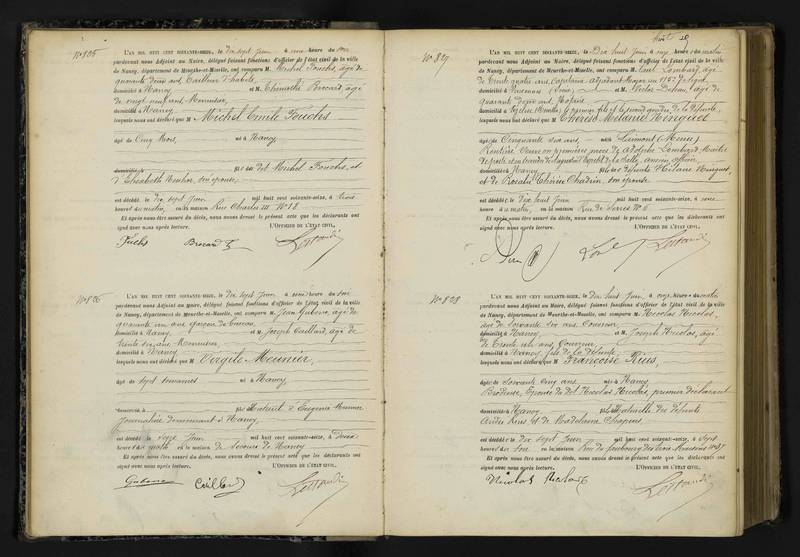 N° 825
L'AN MIL HUIT CENT SOIXANTE-SEIZE, le dix sept Juin à une heure du soir
pardevant nous Adjoint au Maire, délégué faisant fonctions d'officier de l'état civil de la ville
de Nancy, département de Meurthe-et-Moselle, ont comparu M. Michel Fouchs, âgé de
quarante deux ans, Tailleur d'habits,
domicilié à Nancy et M. Brocard, âgé
de vingt neuf ans, Menuisier,
domicilié à Nancy
lesquels nous ont déclaré que M Michel Emile Fouchs
âgé de Cinq Mois, né à Nancy
fils de dit Michel Fouchs, et
d'Elisabeth son épouse,
est décédé le dix sept Juin mil huit cent soixante-seize, à trois
heures du matin, en sa maison Rue Charles III N° 18
Et après nous être assuré du décès, nous avons dressé le présent acte que les déclarants ont
signé avec nous après lecture. L'OFFICIER DE L'ÉTAT CIVIL,
Fuchs Brocard
N° 826
L'AN MIL HUIT CENT SOIXANTE-SEIZE, le dix sept Juin à heure du soir
pardevant nous Adjoint au Maire, délégué faisant fonctions d'officier de l'état civil de la ville
de Nancy, département de Meurthe-et-Moselle, ont comparu M. Jean, âgé de
quarante un ans, garçon de bureau
domicilié à Nancy, et M. Joseph Caillard, âgé de
ans, Menuisier,
domicilié à Nancy
lesquels nous ont déclaré que M Virgile Meunier,
âgé de sept semaines né à Nancy
domicilié à fils naturel d'Eugénie Meunier
Journalière demeurant à Nancy,
est décédé le seize Juin mil huit cent soixante-seize, à deux
heures du matin en la maison de secours de Nancy
Et après nous être assuré du décès, nous avons dressé le présent acte que les déclarants ont
signé avec nous après lecture. L'OFFICIER DE L'ÉTAT CIVIL,
Caillard
N° 827
L'AN MIL HUIT CENT SOIXANTE-SEIZE, le Dix huit Juin, à onze heures du matin
pardevant nous Adjoint au Maire, délégué faisant fonctions d'officier de l'état civil de la ville
de Nancy, département de Meurthe-et-Moselle, ont comparu M. Paul Lombard, âgé
de trente quatre ans, Capitaine adjudant Major au
domicilié à et M. Victor, âgé de
quarante ans
domicilié à le premier fils et le second gendre de la défunte,
lesquels nous ont déclaré que M Thérèse Mélanie Hinguet
âgée de Cinquante six ans, née à (Meuse)
Rentière, Veuve en premières noces de Adolphe Lombard, Maître
de poste et en secondes de ancien officier,
domiciliée à Nancy fille des défunts Hilaire Hinguet,
et de Thérèse son épouse
est décédée le dix huit Juin mil huit cent soixante-seize, à une
heure du matin, en sa maison Rue de N° 6
Et après nous être assuré du décès, nous avons dressé le présent acte que les déclarants ont
signé avec nous après lecture. L'OFFICIER DE L'ÉTAT CIVIL,
N° 828
L'AN MIL HUIT CENT SOIXANTE-SEIZE, le dix huit Juin, à onze heures du matin
pardevant nous Adjoint au Maire, délégué faisant fonctions d'officier de l'état civil de la ville
de Nancy, département de Meurthe-et-Moselle, ont comparu M. Nicolas Nicolas,
âgé de soixante six ans,
domicilié à Nancy, et M. Joseph Nicolas, âgé
de trente ans,
domicilié à Nancy, fils de la défunte
lesquels nous ont déclaré que M Françoise Rius,
âgée de soixante cinq ans née à Nancy
Brodeuse, Epouse de dit Nicolas Nicolas, premier déclarant
domiciliée à Nancy fille des défunts
André Rius, et de Madelaine
est décédée le dix sept Juin mil huit cent soixante-seize, à sept
heures du soir en sa maison, Rue du faubourg des trois Maisons
Et après nous être assuré du décès, nous avons dressé le présent acte que les déclarants ont
signé avec nous après lecture. L'OFFICIER DE L'ÉTAT CIVIL,
Nicolas Nicolas